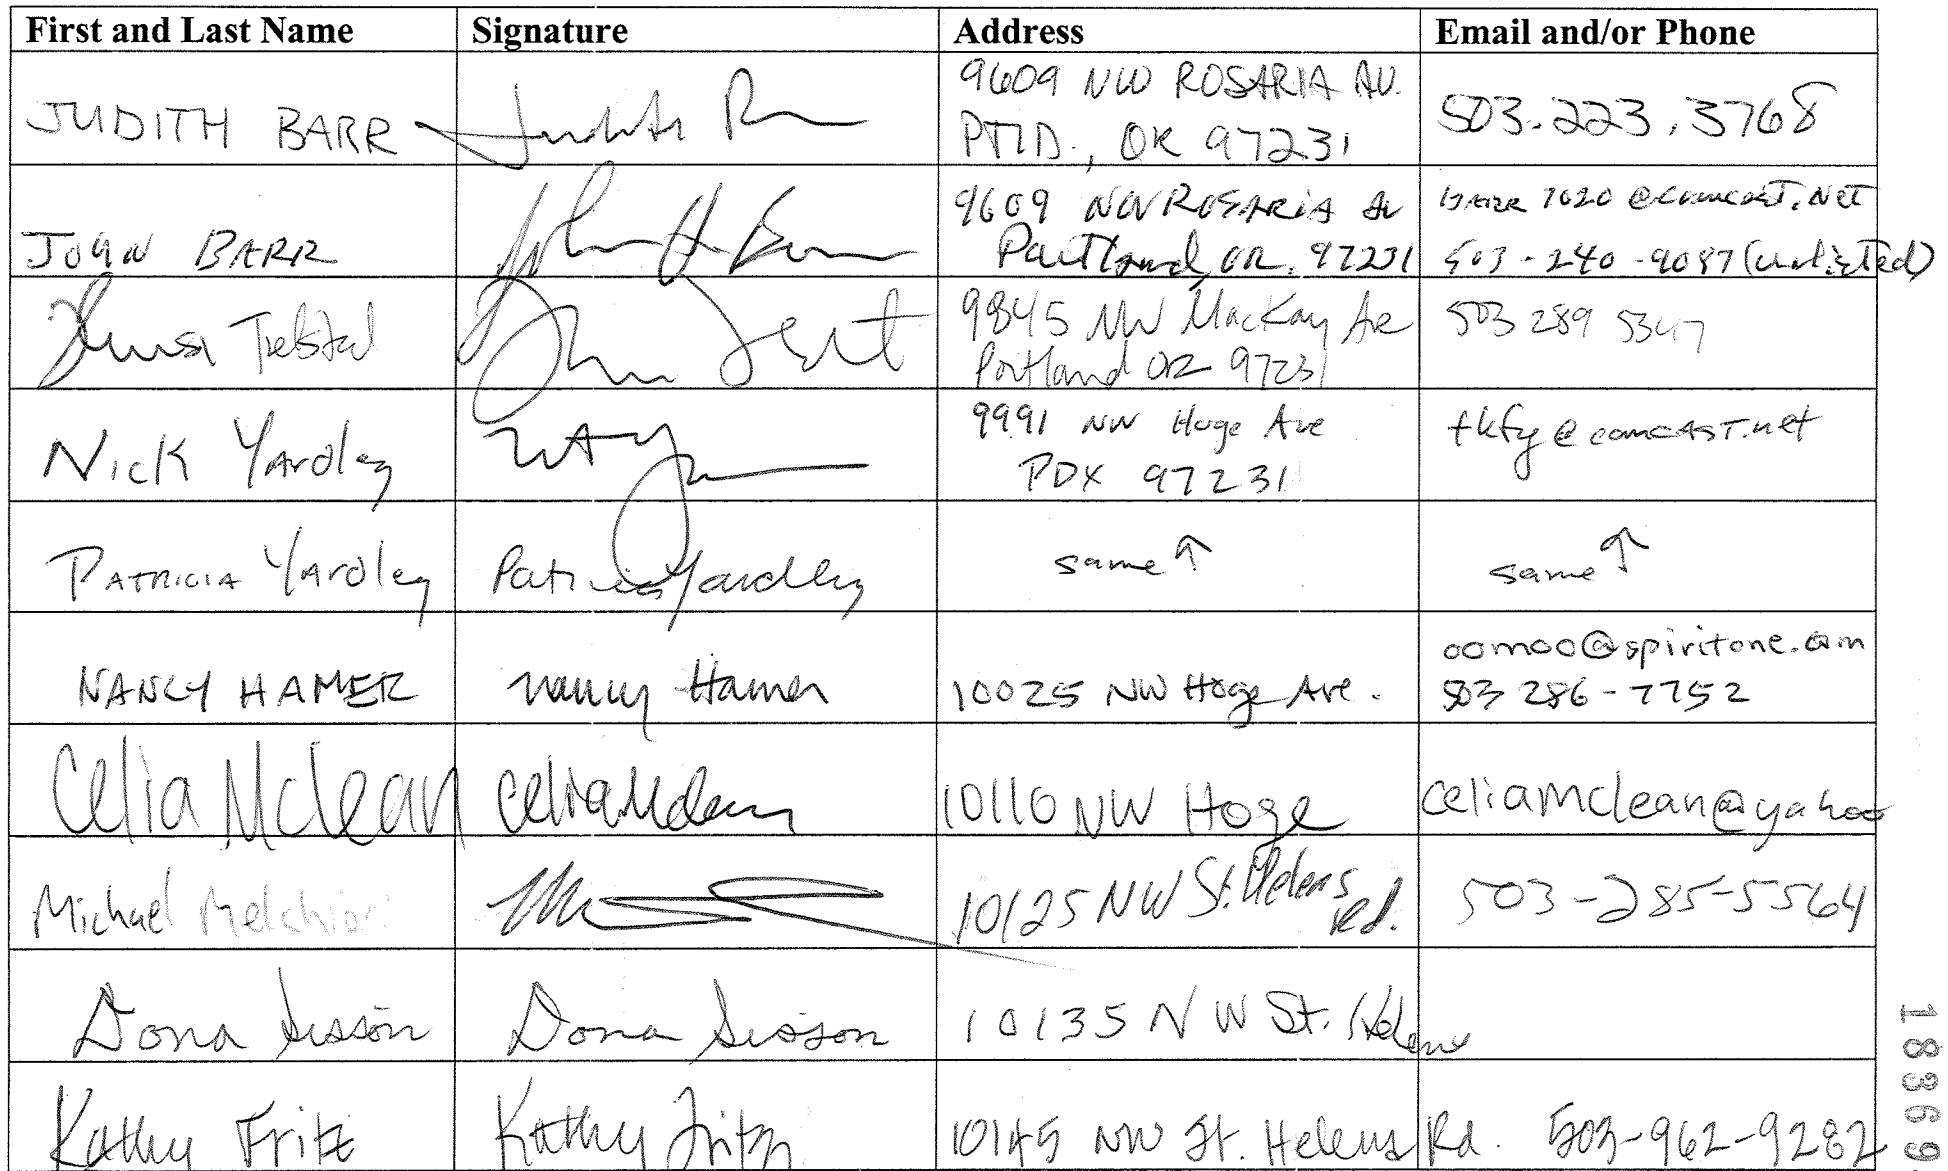 First and Last Name Signature Address Email and/or Phone
JUDITH BARR Judith 9609 NW ROSARIA AV.
PTLD., OR 97231 503.223.3768
JOHN BARR John H Barr 9609 NW ROSARIA AV
Portland, OR. 97231 BARR 7020 @comcast.Net
503-240-9087 (unlisted)
9845 NW MacKay Ave
Portland OR 97231 503 289 5347
Nick Yardley 9991 NW Hoge Ave
PDX 97231 tkfy@comcAST.net
PATRICIA Yardley Patricia Yardley same ↑ same ↑
NANCY HAMER Nancy Hamer 10025 NW Hoge Ave. oomoo@spiritone.com
503 286-7752
Celia Mclean Celia Mclean 10110 NW Hoge celiamclean@yahoo
Michael Melchior 10125 NW St. Helens
Rd. 503-285-5564
Dona Sisson Dona Sisson 10135 NW St. Helens
Kathy Fritz Kathy Fritz 10145 NW St. Helens Rd. 503-962-9282
18369